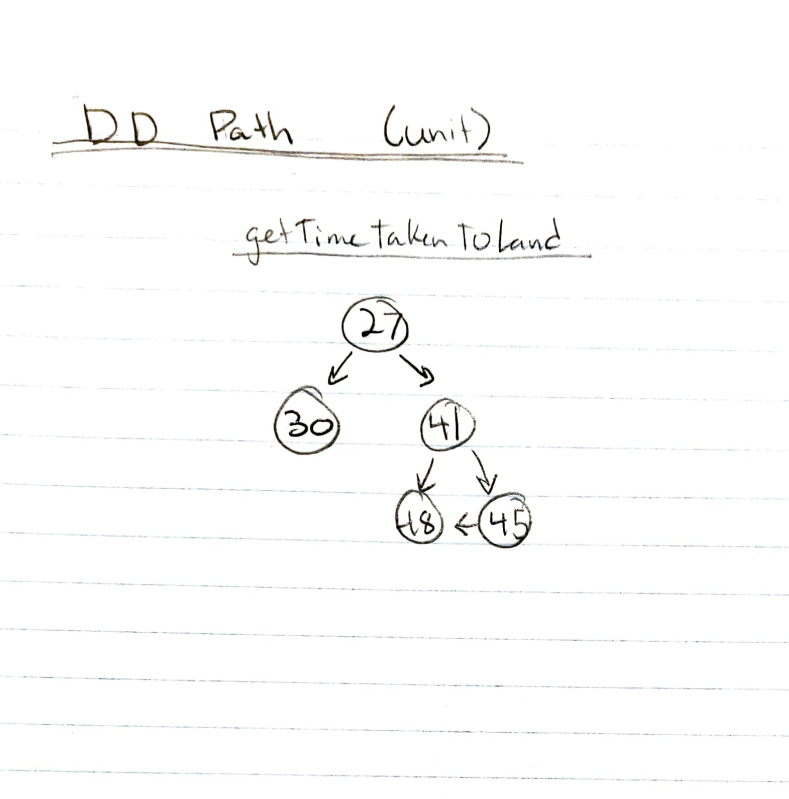 DD Path (unit)
getTimeTakenToLand
27
30 41
48 45